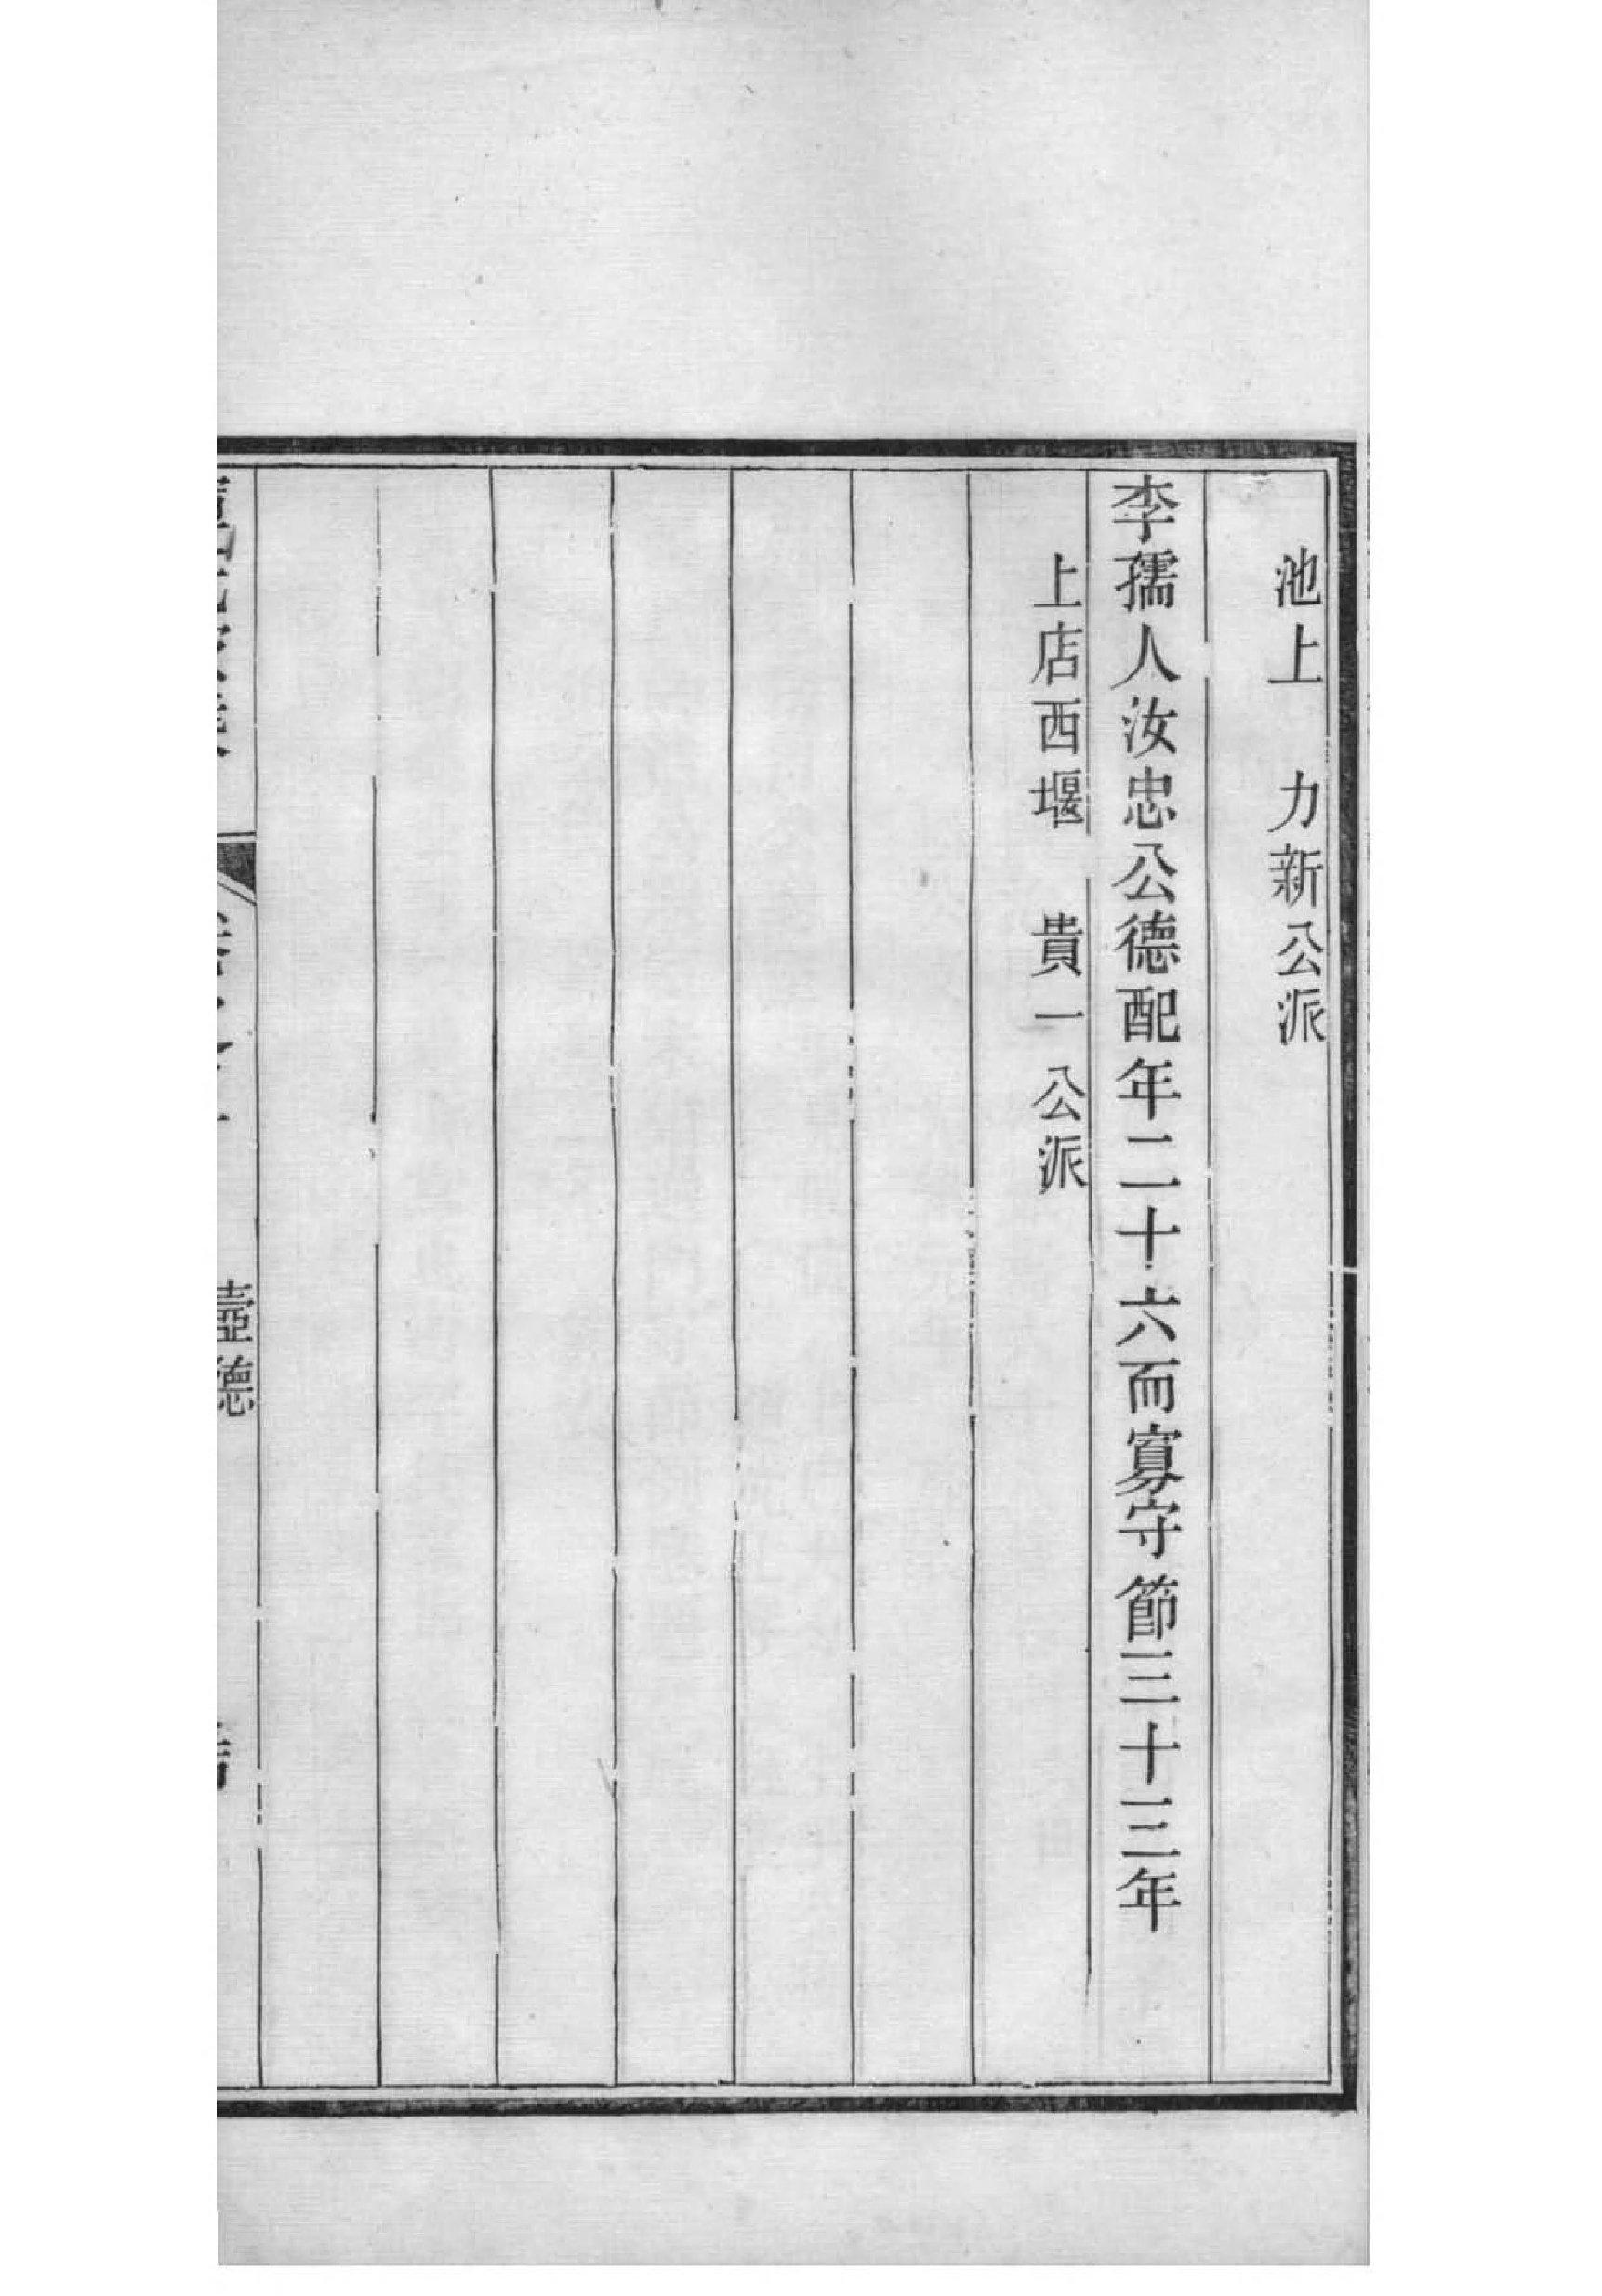 池上　力新公派
李孺人汝忠公德配年二十六而寡守節三十三年
上店西堰　貴一公派
壼德